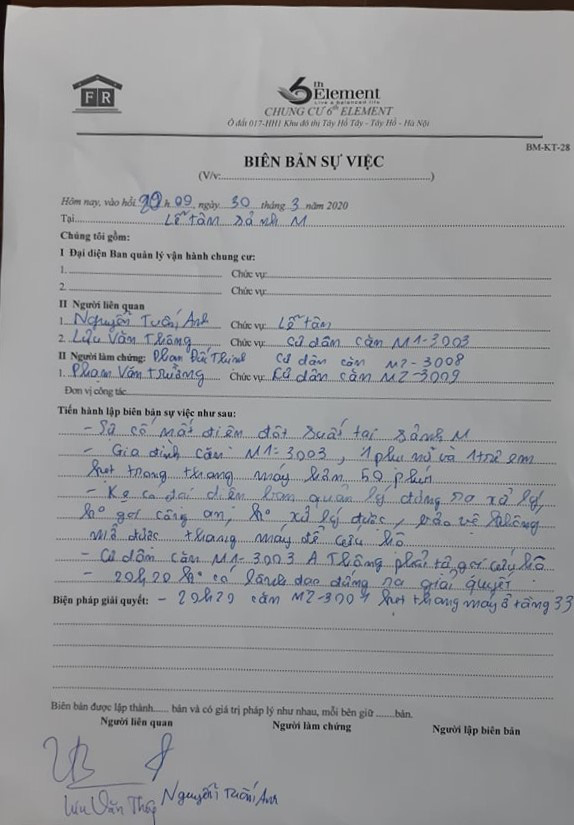 FR
6th Element
Live a balanced life
CHUNG CƯ 6TH ELEMENT
Ô đất 017-HH1 Khu đô thị Tây Hồ Tây - Tây Hồ - Hà Nội
BM-KT-28
BIÊN BẢN SỰ VIỆC
(V/v:..........)
Hôm nay, vào hồi 20 h 09, ngày 30 tháng 3 năm 2020
Tại Lễ tân sảnh M
Chúng tôi gồm:
I Đại diện Ban quản lý vận hành chung cư:
1. Chức vụ:
2. Chức vụ:
II Người liên quan
1. Nguyễn Tuấn Anh Chức vụ: Lễ tân
2. Lưu Văn Thông Chức vụ: Cư dân căn M1-3003
II Người làm chứng: Phạm Thịnh Cư dân căn M2-3008
1. Phạm Văn Trưởng Chức vụ: Cư dân căn M2-3009
Đơn vị công tác
Tiến hành lập biên bản sự việc như sau:
- Sự cố mất điện đột xuất tại sảnh M
- Gia đình căn M1-3003, 1 phụ nữ và 1 trẻ em
kẹt trong thang máy 50 phút
- Ko có đại diện ban quản lý đứng ra xử lý,
ko gọi công an, ko xử lý được, bảo vệ không
mở được thang máy để cứu hộ
- Cư dân căn M1-3003 A Thông phải tự gọi cứu hộ
- 20h20 ko có lãnh đạo đứng ra giải quyết
Biện pháp giải quyết: - 20h20 căn M2-3007 kẹt thang máy ở tầng 33
Biên bản được lập thành...... bản và có giá trị pháp lý như nhau, mỗi bên giữ .......bản.
Người liên quan Người làm chứng Người lập biên bản
Lưu Văn Thông Nguyễn Tuấn Anh